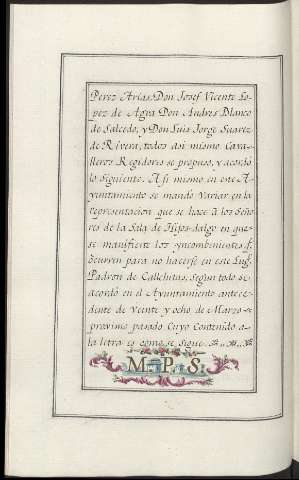 Perez Arias, Don Josef Vicente Lo-
pez de Agra Don Andres Blanco
de Salcedo, y Don Luis Jorge Suarez
de Rivera, todos asi mismo Cava-
lleros Regidores se propuso, y acordó
lo siguiente. Asi mismo en este A-
yuntamiento se mandó variar en la
representacion que se hace á los Seño-
res de la Sala de Hijos-dalgo en que
se manifieste los yncombenientes q.
ocurren para no hacerse en este Lug.
Padron de Callehitas, segun todo se
acordó en el Ayuntamiento antece-
dente de Veinte y ocho de Marzo
proximo pasado Cuyo Contenido a
la letra es como se sigue.
M. P. S.